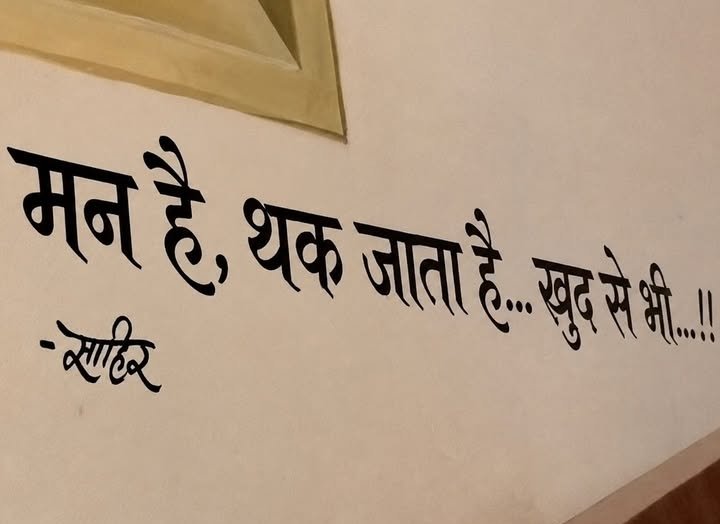 मन है, थक जाता है... ख़ुद से भी...!!
-साहिर